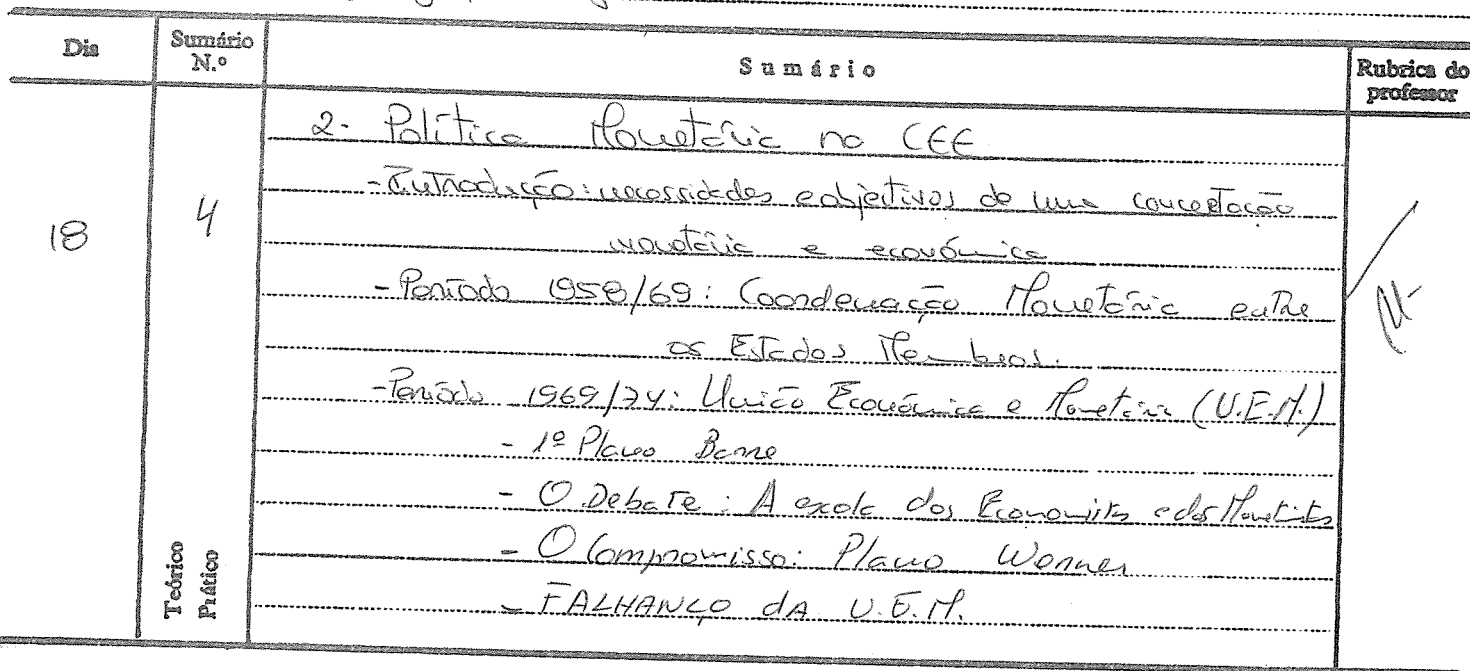 Dia
Sumário N.º
Sumário
Rubrica do professor
18
4
Teórico
Prático
2- Política Monetária na CEE
- Introdução: necessidades e objectivos de uma concertação
monetária e económica
- Período 1958/69: Coordenação Monetária entre
os Estados Membros.
- Período 1969/74: União Económica e Monetária (U.E.M.)
- 1º Plano Barre
- O Debate: A escola dos Economistas e dos Monetaristas
- O Compromisso: Plano Werner
- FALHANÇO dA U.E.M.